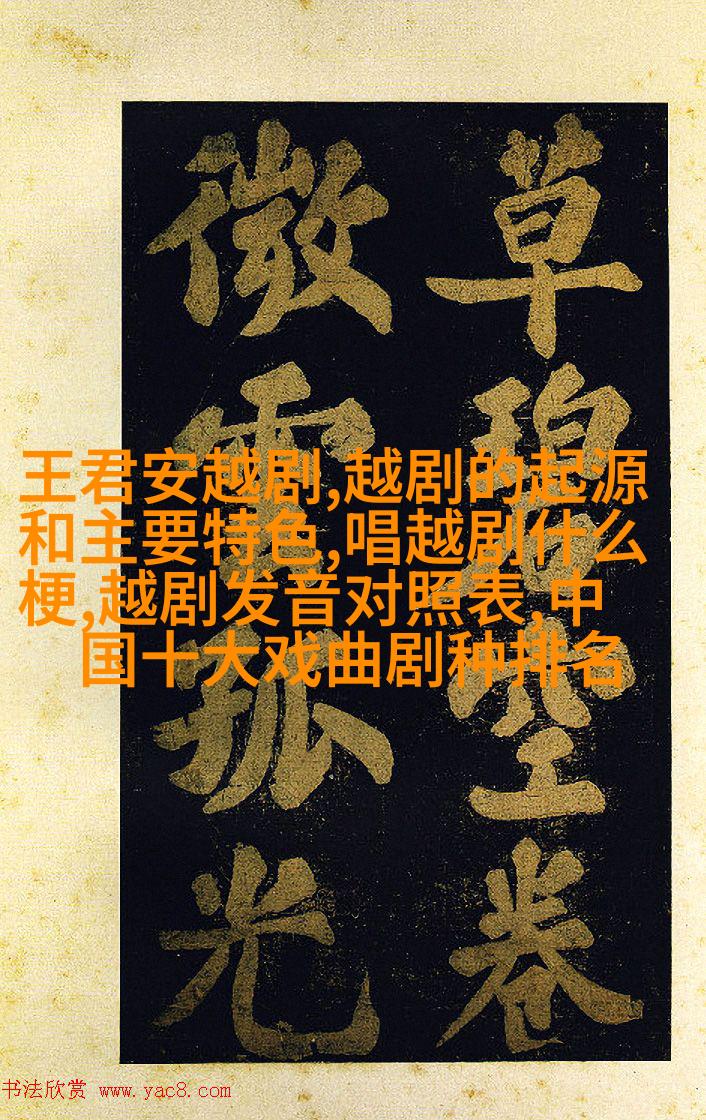 草碧空卷
微雲孤光
王君安越剧,越剧的起源
和主要特色,唱越剧什么
梗,越剧发音对照表,中
国十大戏曲剧种排名
书法欣赏 www.yac8.com